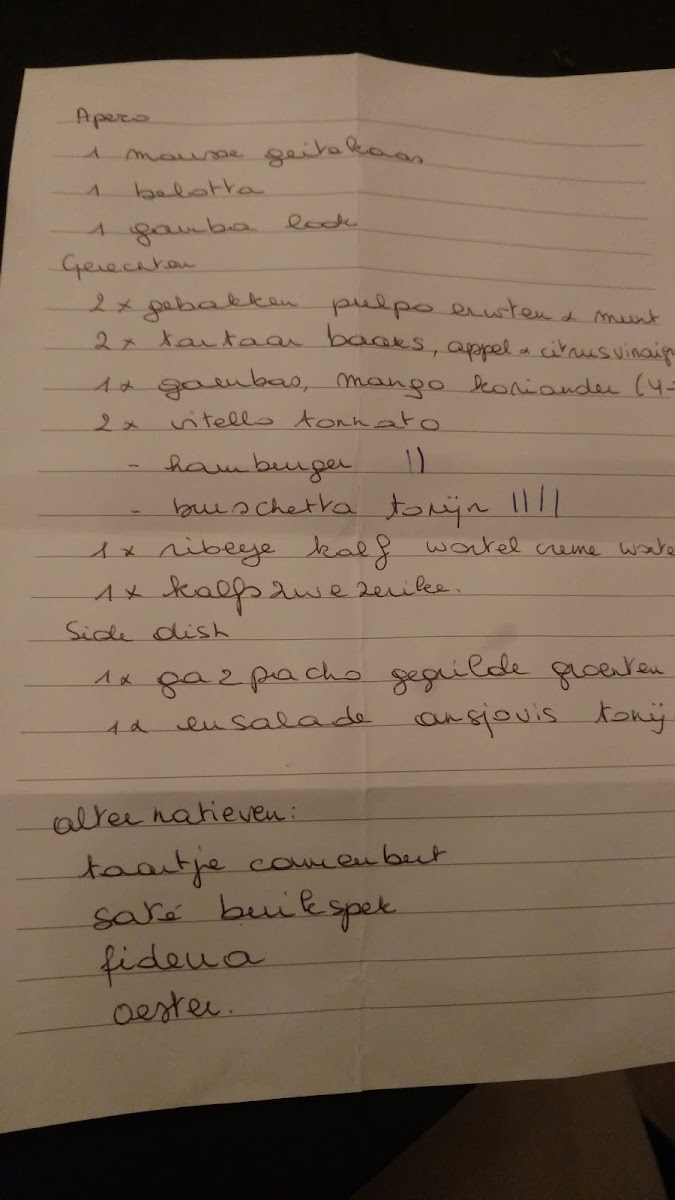 Apero
1 mousse geitekaas
1 belotta
1 gamba look
Gerechten
2 x gebakken pulpo erwten & munt
2 x tartaar baars, appel & citrusvinaigr
1x gambas, mango koriander (4-
2 x vitello tonnato
- hamburger ||
- bruschetta tonijn ||||
1 x ribeye kalf wortel creme worte
1 x kalfszwezerike.
Side dish
1x gazpacho gegrilde groenten
1x ensalade ansjovis tonij
alternatieven:
taartje camenbert
saté buikspek
fideua
oester.